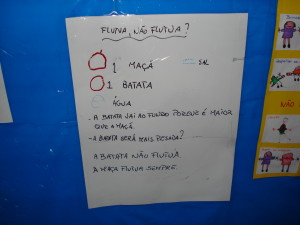 FLUTUA, NÃO FLUTUA?
1 MAÇÃ
SAL
1 BATATA
ÁGUA
- A BATATA VAI AO FUNDO PORQUE É MAIOR
QUE A MAÇÃ.
- A BATATA SERÁ MAIS PESADA?
A BATATA NÃO FLUTUA
A MAÇÃ FLUTUA SEMPRE.
NÃO